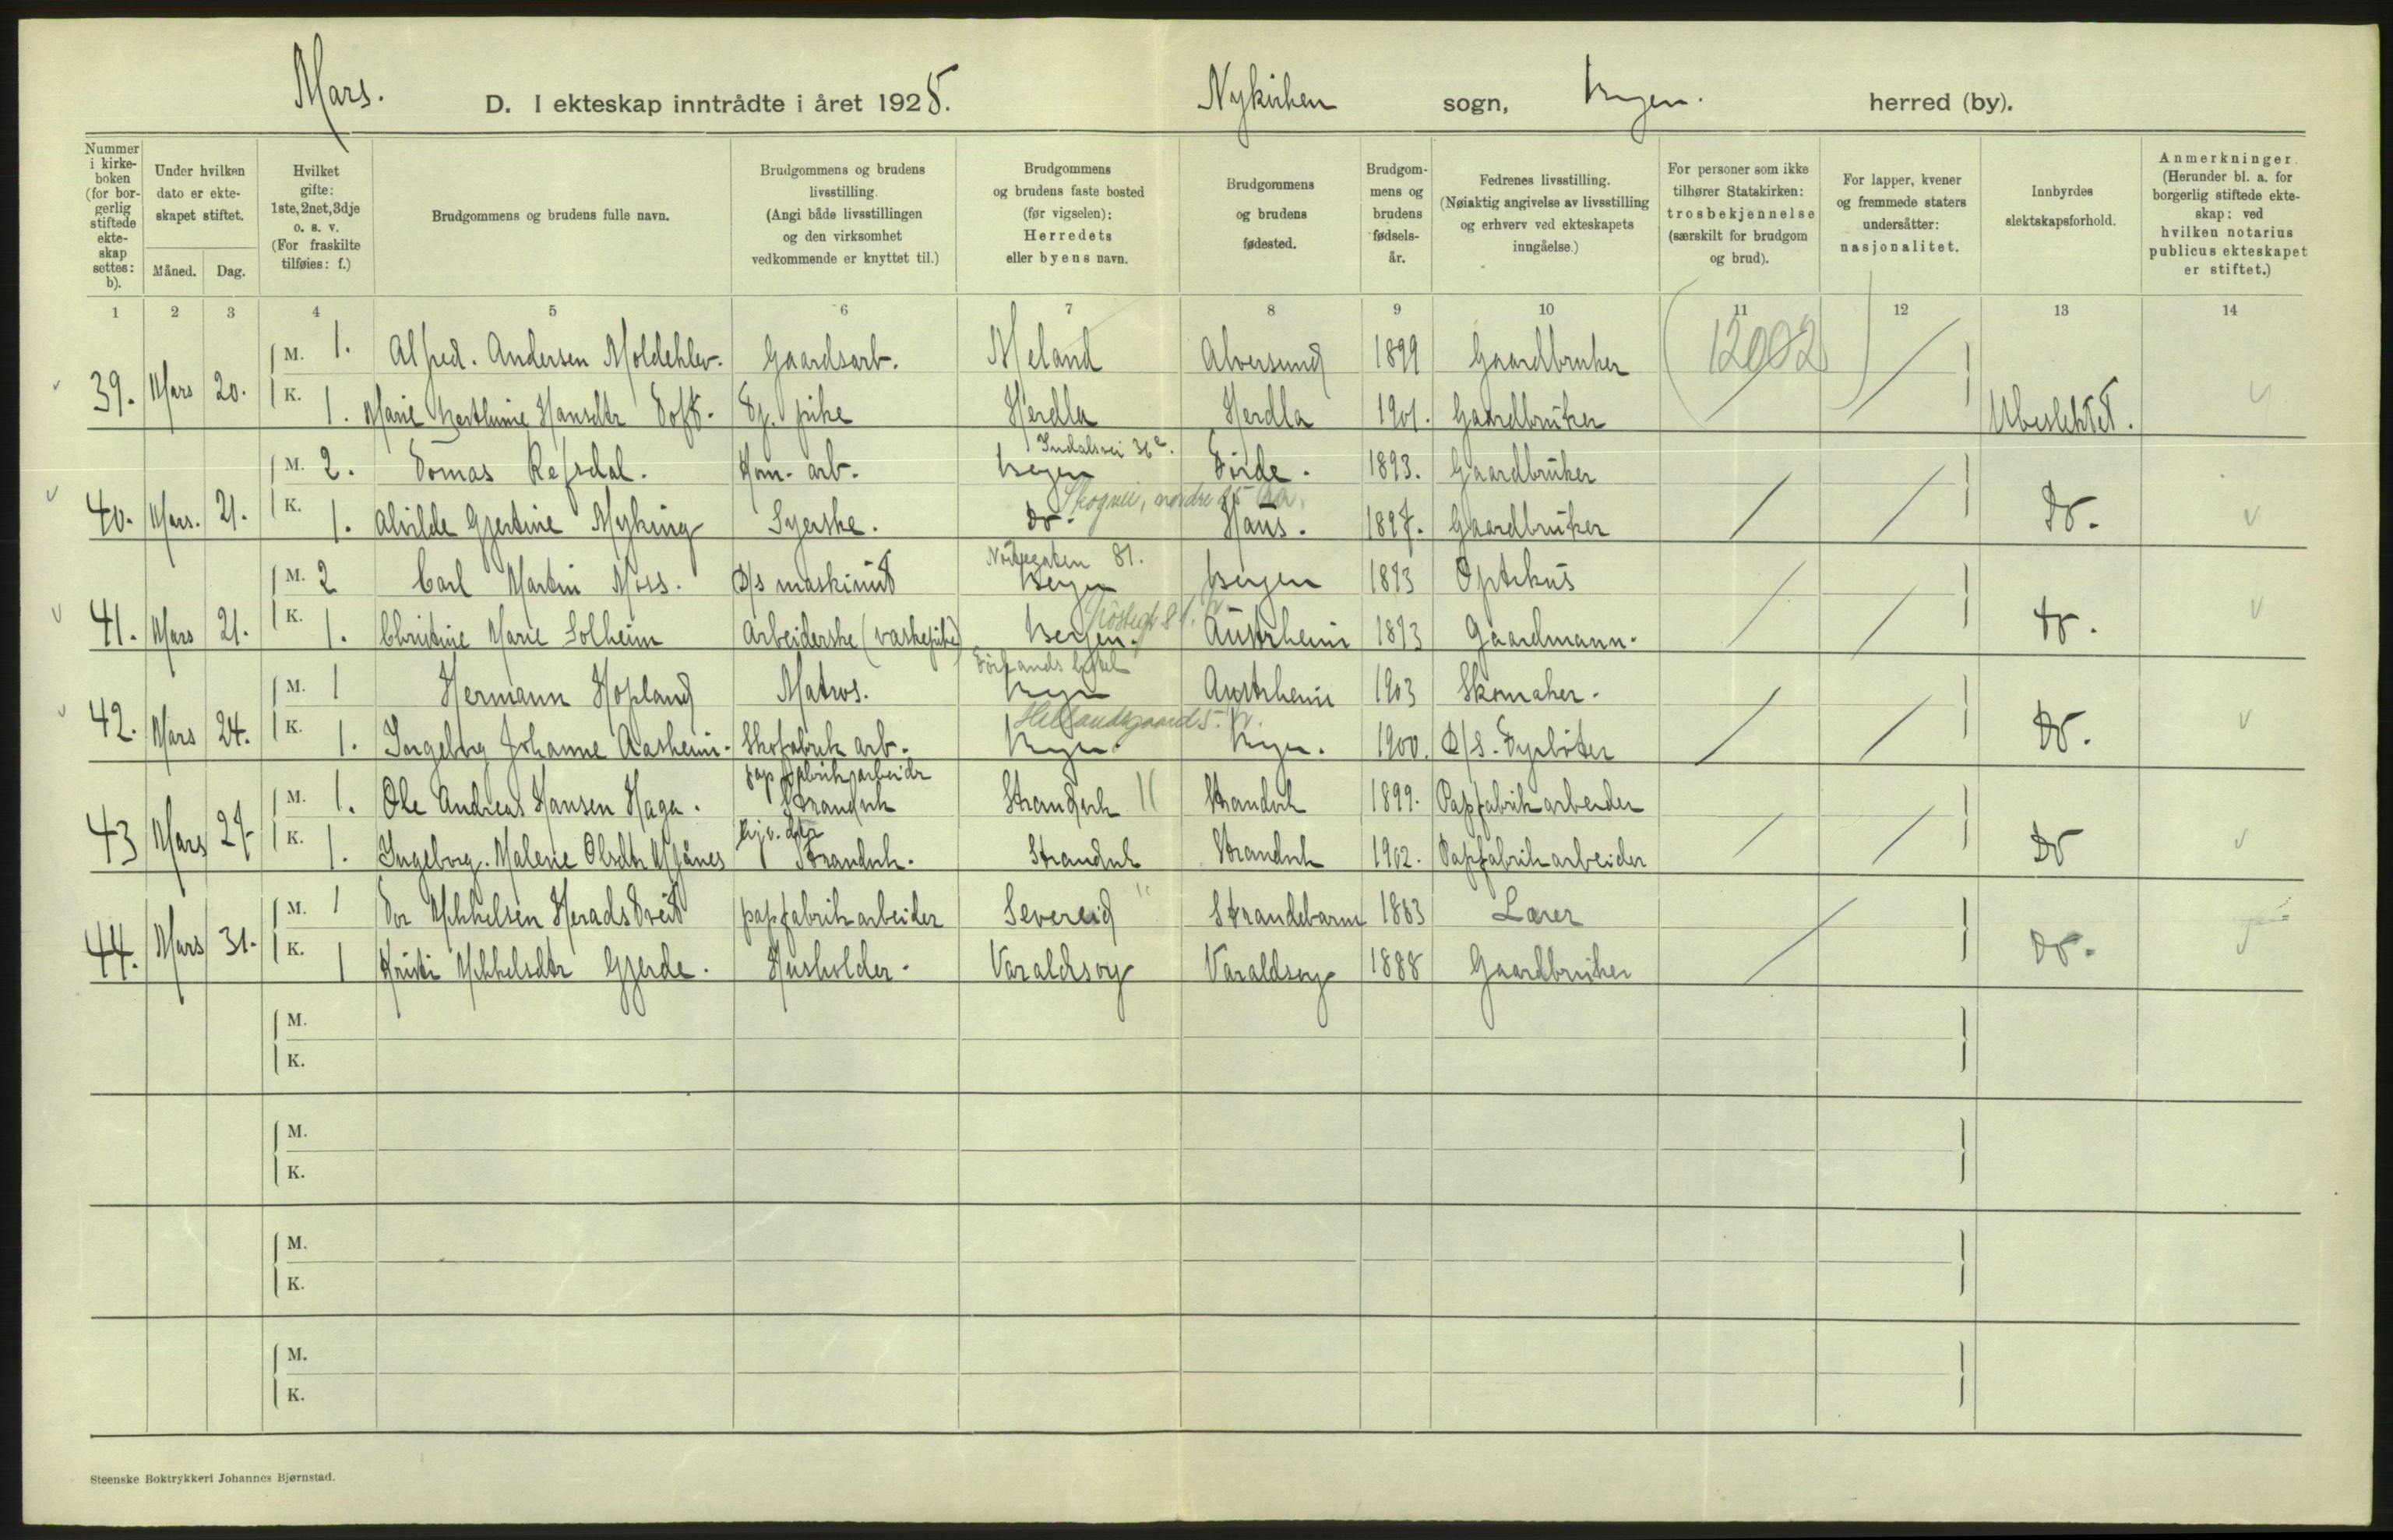 Mars. D. I ekteskap inntrådte i året 1925. Nykirken sogn, Bergen. herred (by).
Nummer i kirkeboken (for borgerlig stiftede ekteskap settes: b).
Under hvilken dato er ekteskapet stiftet.
Måned. Dag.
Hvilket gifte: 1ste, 2net, 3dje o. s. v. (For fraskilte tilføies: f.)
Brudgommens og brudens fulle navn.
Brudgommens og brudens livsstilling. (Angi både livsstillingen og den virksomhet vedkommende er knyttet til.)
Brudgommens og brudens faste bosted (før vigselen): Herredets eller byens navn.
Brudgommens og brudens fødested.
Brudgommens og brudens fødselsår.
Fedrenes livsstilling. (Nøiaktig angivelse av livsstilling og erhverv ved ekteskapets inngåelse.)
For personer som ikke tilhører Statskirken: trosbekjennelse (særskilt for brudgom og brud).
For lapper, kvener og fremmede staters undersåtter: nasjonalitet.
Innbyrdes slektskapsforhold.
Anmerkninger. (Herunder bl. a. for borgerlig stiftede ekteskap: ved hvilken notarius publicus ekteskapet er stiftet.)
1 2 3 4 5 6 7 8 9 10 11 12 13 14
(12002)
39. Mars 20. M. 1. Alfred. Andersen Moldeklev. Gaardsarb. Meland Alversund 1899 Gaardbruker
K. 1. Marie Berthine Hansdtr Toft. Tj. pike Herdla Herdla 1901. Gaardbruker Ubeslektet.
Indalsvei 36
40. Mars. 21. M. 2. Tomas Refsdal. Kom. arb. Bergen Förde. 1893. Gaardbruker
Skogvei, nordre 25
K. 1. Alvilde Gjertine Myking Syerske. Do. Haus. 1897. Gaardbruker Do.
Nöstegaten 81.
41. Mars 21. M. 2 Carl Martin Moss. D/s maskinist Bergen Bergen 1893 Optikus
Nöstegt 81.
K. 1. Christine Marie Solheim Arbeiderske (vaskepike) Bergen. Austrheim 1893 Gaardmann. Do.
42. Mars 24. M. 1 Hermann Hopland Matros. Bergen Austrheim 1903 Skomaker.
K. 1. Ingeborg Johanne Aasheim. Skofabrik arb. Bergen. Bergen. 1900. D/S. Fyrböter Do.
papfabrikarbeider
43 Mars 27 M. 1. Ole Andreas Hansen Haga. Strandvik Strandvik Strandvik 1899. Papfabrikarbeider
Hjv. dtr
K. 1. Ingeborg. Malene Olsdtr Strandvik. Strandvik Strandvik 1902. Papfabrikarbeider Do
44. Mars 31. M. 1 Tor Mikkelsen Heradstveit papfabrikarbeider Sævereid Strandebarm 1883 Lærer
K. 1 Kristi Mikkelsdtr Gjerde. Husholder. Varaldsøy Varaldsøy 1888 Gaardbruker Do.
M.
K.
M.
K.
M.
K.
M.
K.
Steenske Boktrykkeri Johannes Bjørnstad.